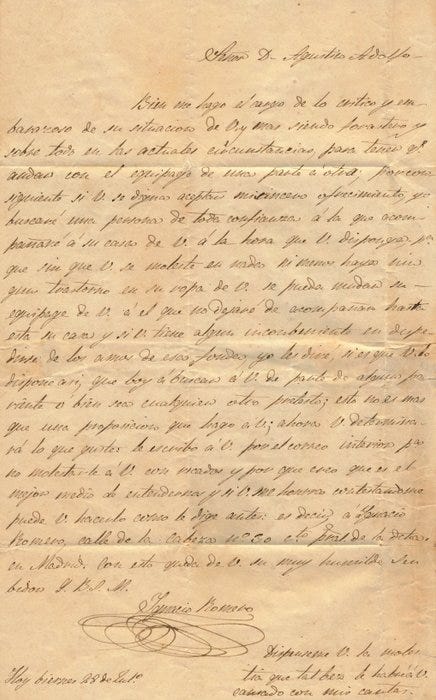 Señor D. Agustin Adolfo
Bien me hago el cargo de lo critico y em-
barazoso de su situacion de V. y mas siendo forastero y
sobre todo en las actuales circunstancias, para tener qe
andar con el equipage de una parte á otra; por con
siguiente si V. se digna aceptar mi sincero ofrecimiento, yo
buscaré una persona de toda confianza a la que acom
pañaré á su casa de V. á la hora que V. disponga, pa
que sin que V. se moleste en nada ni menos haya nin
gun trastorno en su ropa de V. se pueda mudar su
equipage de V. á el que no dejaré de acompañar hasta
esta su casa y si V. tiene algun inconveniente en despe
dirse de los amos de esa fonda yo le diré, si es que V. lo
dispone asi, que boy á buscar á V. de parte de algun pa
riente ó bien sea cualquier otro pretesto; esto no es mas
que una proposicion que hago á V.; ahora V. determina
rá lo que guste le escribo á V. por el correo interior pa no
molestarle á V. con recados y por que creo que es el
mejor medio de entendernos y si V. me honrra contestandome
puede V. hacerlo como le dige antes: es decir á Ignacio
Romero, calle de la Cabeza no 30 cto pral de la
en Madrid. Con esto queda de V. su muy humilde Ser
bidor S. B. S. M.
Ignacio Romero
Dispenseme V. la moles
Hoy biernes 28 de
tia que tal bez le habrá V.
causado con mi carta.